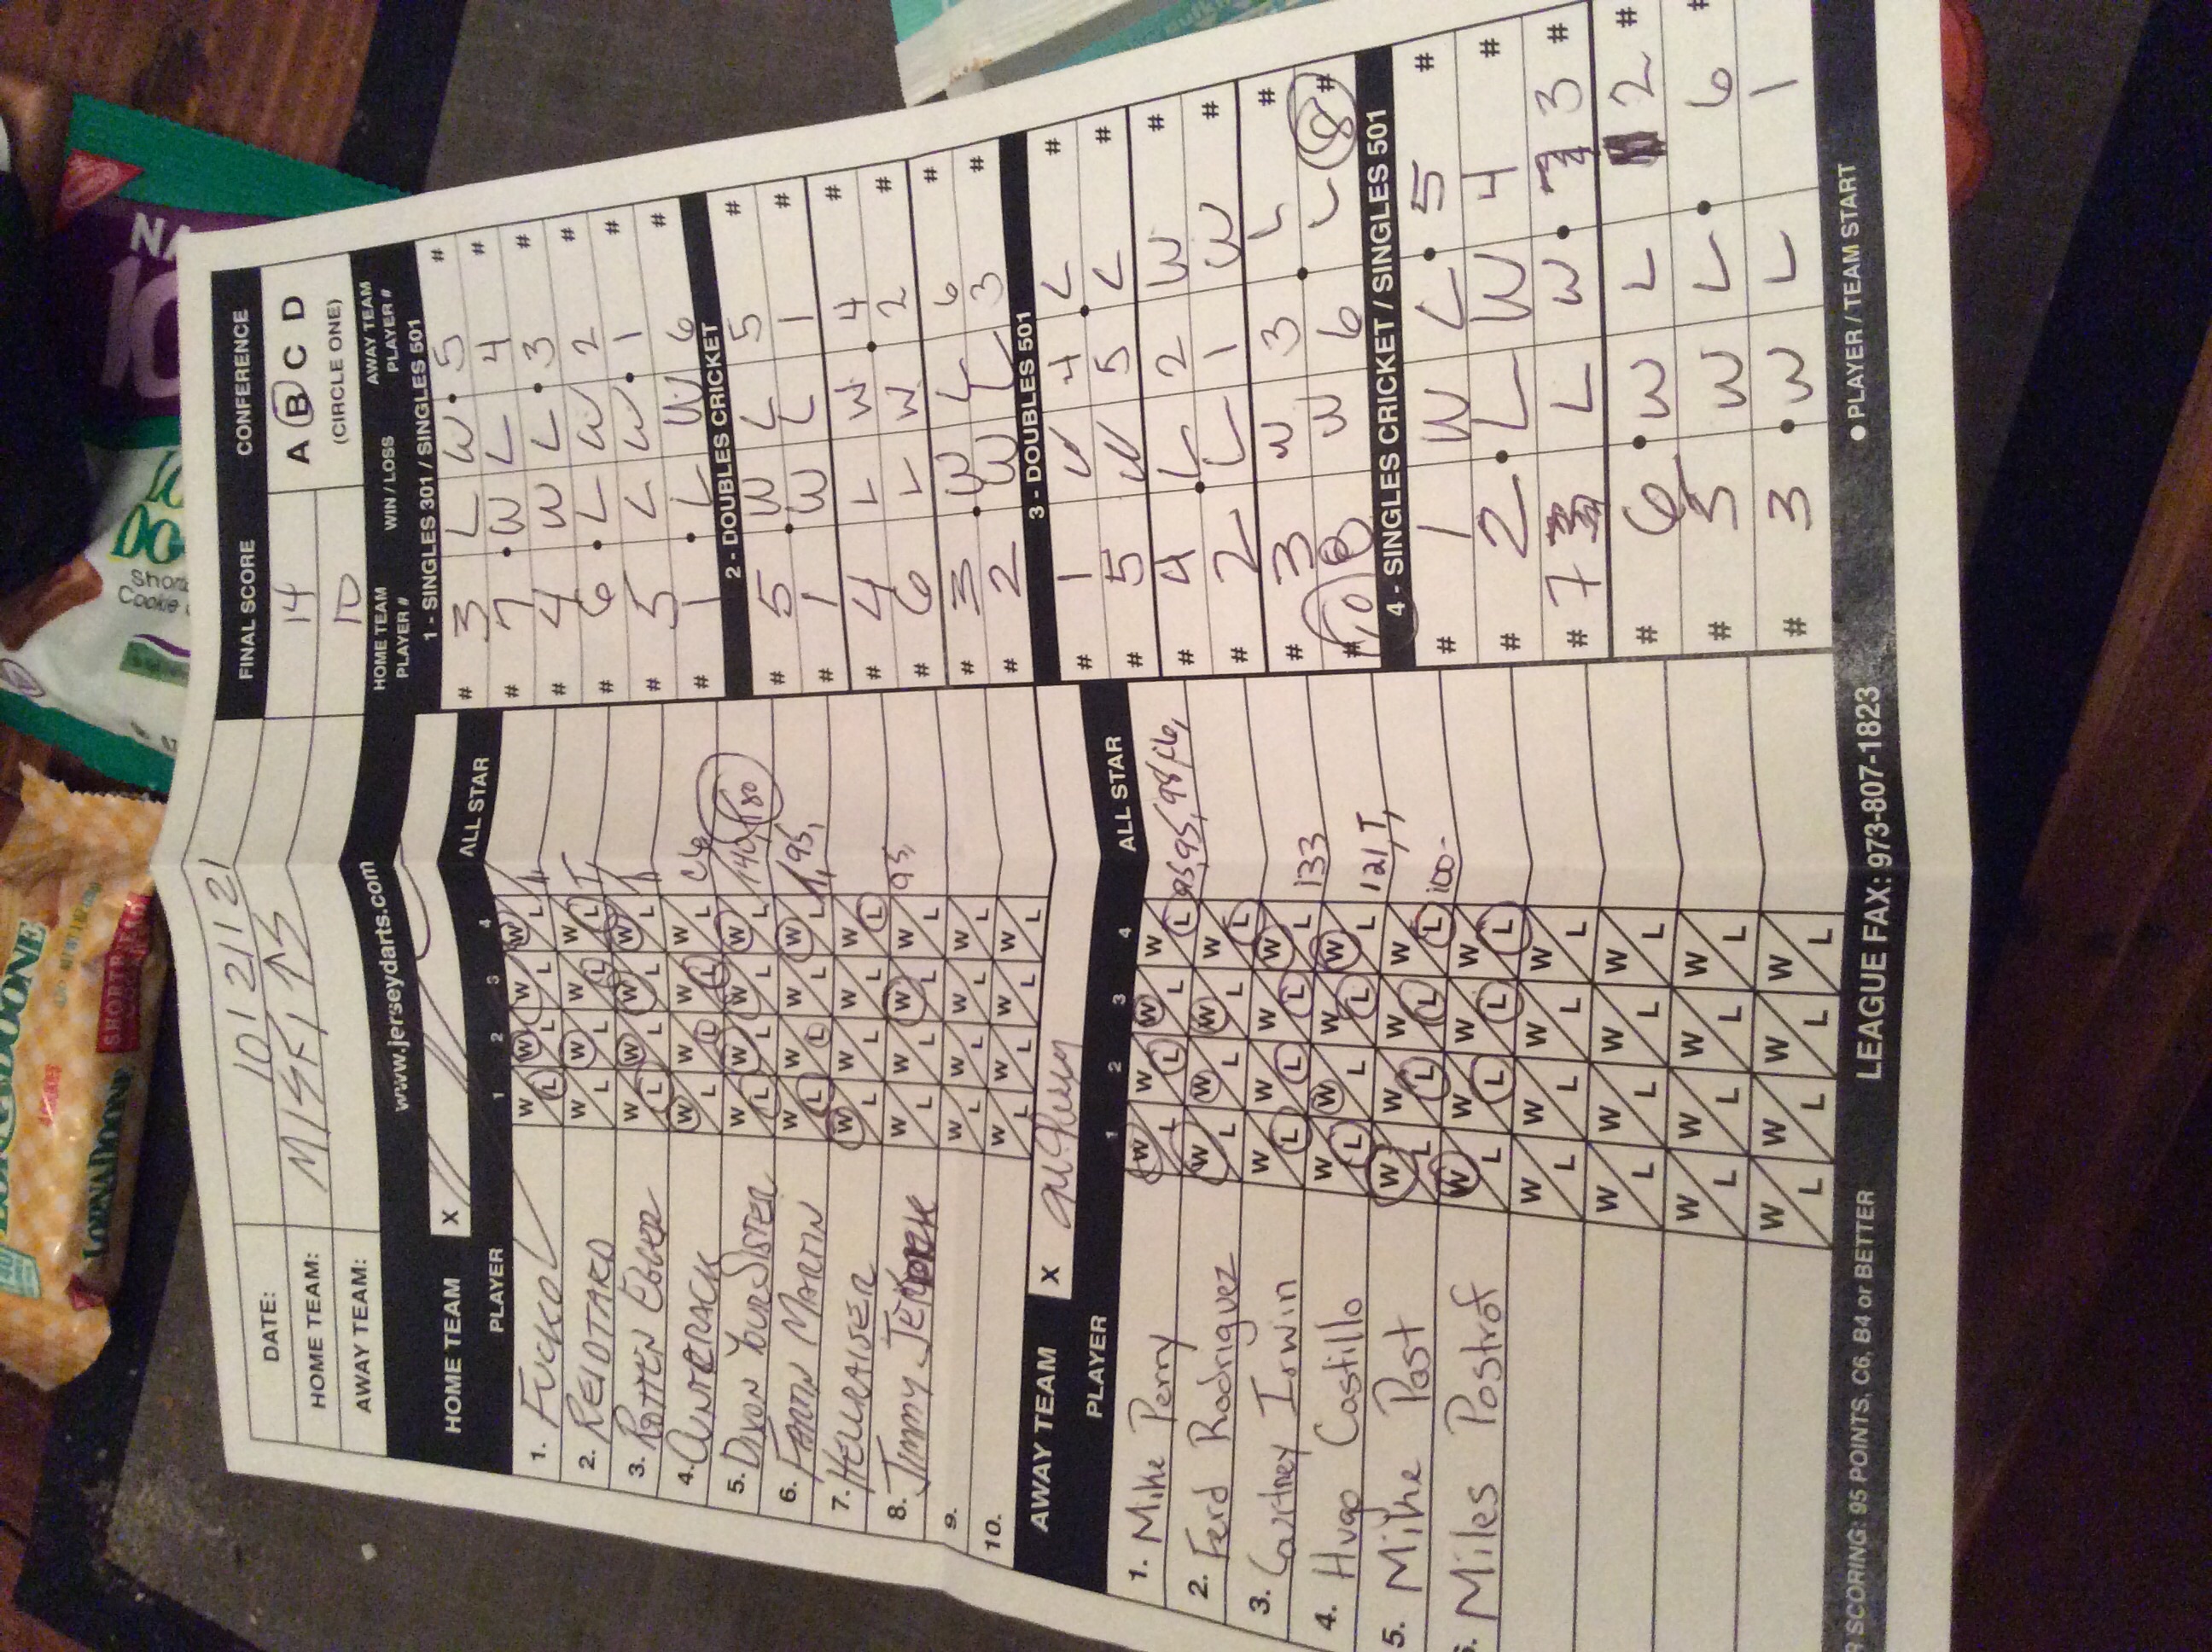 DATE: 10/21/21
FINAL SCORE CONFERENCE
HOME TEAM: MISFITS 14 A B C D
AWAY TEAM: 10 (CIRCLE ONE)
www.jerseydarts.com
HOME TEAM PLAYER # WIN / LOSS AWAY TEAM PLAYER #
HOME TEAM X
PLAYER 1 2 3 4 ALL STAR
1. FUCKO W L W L W L W L
2. REIDTARD W L W L W L W L T,
3. ROTTEN EGGER W L W L W L W L
4. W L W L W L W L C6,
5. DIXON YOURSISTER W L W L W L W L 140, 180
6. FARTIN MARTIN W L W L W L W L 95,
7. HELLRAISER W L W L W L W L
8. JIMMY W L W L W L W L 95,
9. W L W L W L W L
10. W L W L W L W L
AWAY TEAM X
PLAYER 1 2 3 4 ALL STAR
1. Mike Perry W L W L W L W L 95, 95, 98,
2. Ferd Rodriguez W L W L W L W L
3. Courtney Irwin W L W L W L W L 133
4. Hugo Castillo W L W L W L W L 121, T,
5. Mike Post W L W L W L W L 100-
6. Miles Postrof W L W L W L W L
W L W L W L W L
W L W L W L W L
W L W L W L W L
W L W L W L W L
1 - SINGLES 301 / SINGLES 501
# 3 L W 5 #
# 7 W L 4 #
# 4 W L 3 #
# 6 L W 2 #
# 5 L W 1 #
# 1 L W 6 #
2 - DOUBLES CRICKET
# 5 W L 5 #
1 W L 1 #
# 4 L W 4 #
# 6 L W 2 #
# 3 W L 6 #
# 2 W L 3 #
3 - DOUBLES 501
# 1 W 4 L #
# 5 W 5 L #
# 4 L 2 W #
# 2 L 1 W #
# 3 W 3 L #
# 10 W 6 L 8 #
4 - SINGLES CRICKET / SINGLES 501
# 1 W L 5 #
# 2 L W 4 #
# 7 L W 3 #
# 6 W L 2 #
# 5 W L 6 #
# 3 W L 1
SCORING: 95 POINTS, C6, B4 or BETTER LEAGUE FAX: 973-807-1823 ● PLAYER / TEAM START
LORNA DOONE
SHORTBREAD
LORNA DOONE
Cookie